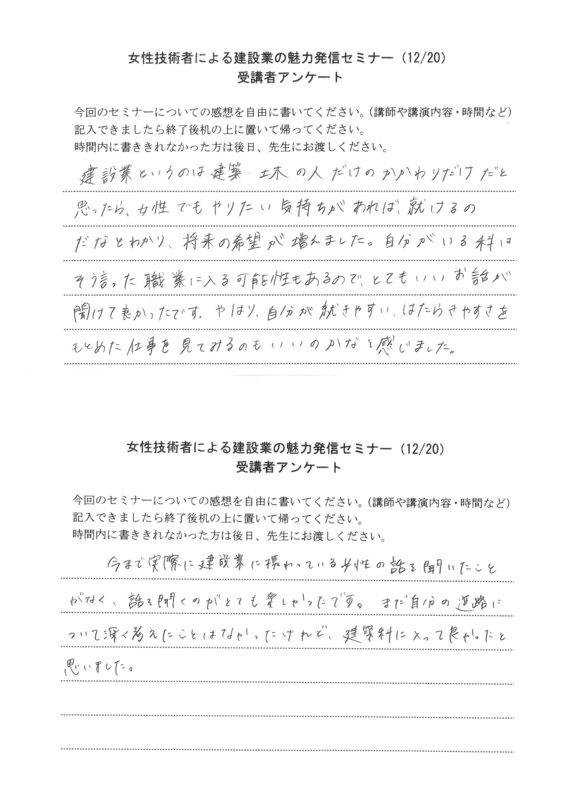 女性技術者による建設業の魅力発信セミナー（12/20）
受講者アンケート
今回のセミナーについての感想を自由に書いてください。（講師や講演内容・時間など）
記入できましたら終了後机の上に置いて帰ってください。
時間内に書ききれなかった方は後日、先生にお渡しください。
建設業というのは建築 土木の人だけのかかわりだけだと
思ったら、女性でもやりたい気持ちがあれば、就けるの
だなとわかり、将来の希望が増えました。自分がいる科は
そう言った職業に入る可能性もあるので、とてもいいお話が
聞けて良かったです。やはり、自分が就きやすい、はたらきやすさを
もとめた仕事を見てみるのもいいのかなと感じました。
女性技術者による建設業の魅力発信セミナー（12/20）
受講者アンケート
今回のセミナーについての感想を自由に書いてください。（講師や講演内容・時間など）
記入できましたら終了後机の上に置いて帰ってください。
時間内に書ききれなかった方は後日、先生にお渡しください。
今まで実際に建設業に携わっている女性の話を聞いたこと
がなく、話を聞くのがとても楽しかったです。まだ自分の進路に
ついて深く考えたことはなかったけれど、建築科に入って良かったと
思いました。